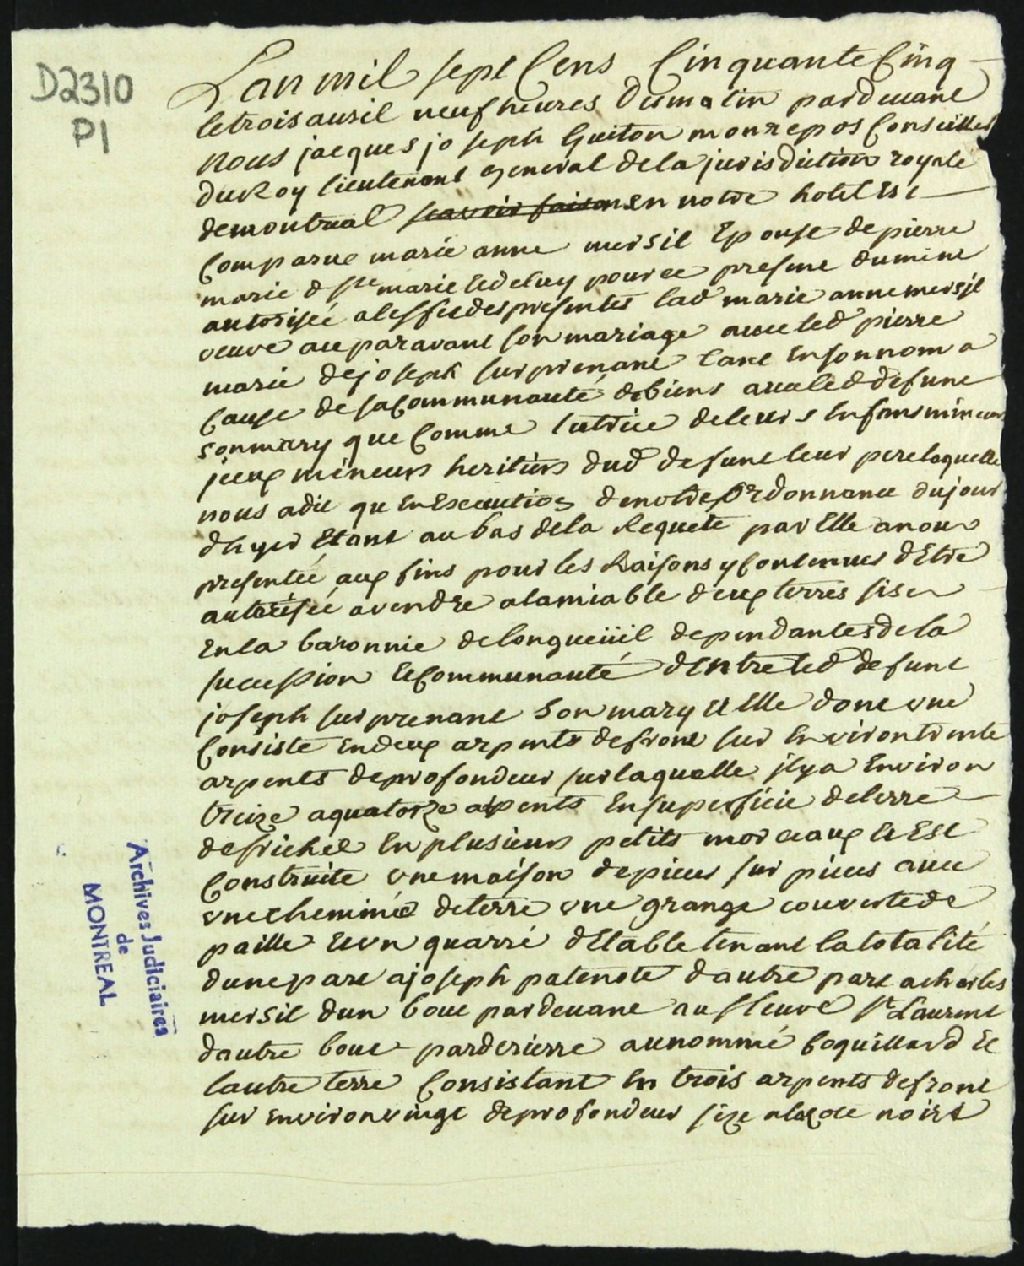 D2310
P1
Lan mil sept Cens Cinquante Cinq
le trois auril neuf heures du matin pardeuant
Nous jacques joseph Guiton monrepos Conseiller
du Roy lieutenant general de la jurisdiction royale
de montreal en notre hotel Est
Comparue marie anne mersil Epouse de pierre
marie d ste marie
autorisée a leffet des presentes lad marie anne mersil
veuve auparavant son mariage avec led pierre
marie de joseph surprenant tant En son nom a
Cause de sa Communauté de biens avec led defunt
son mary que Comme tutrice de leurs Enfans mineurs
mineurs heritiers dud defunt leur pere laquelle
nous a dit qu En Execution de notre Ordonnance du jour
dhyer Etant au bas de la Requete par Elle a nous
presentée aux fins pour les Raisons y Contenues dEtre
autorisée a vendre a lamiable deux terres sises
En la baronnie de longueüil dependantes de la
succession et Communauté dEntre led defunt
joseph surprenant son mary et Elle dont une
Consiste En deux arpents de front sur Environ trente
arpents de profondeur sur laquelle il y a Environ
treize a quatorze arpents En superficie de terre
defrichée En plusieurs petits morceaux et Est
Construite une maison de pieces sur pieces avec
une cheminée de terre une grange couverte de
paille et un quarré dEtable tenant la totalité
dune part a joseph patenote dautre part a charles
mersil dun bout pardevant au fleuve St Laurent
dautre bout par derierre au nommé Coquillard Et
lautre terre Consistant En trois arpents de front
sur Environ vingt de profondeur size
Archives Judiciaires
de
MONTREAL